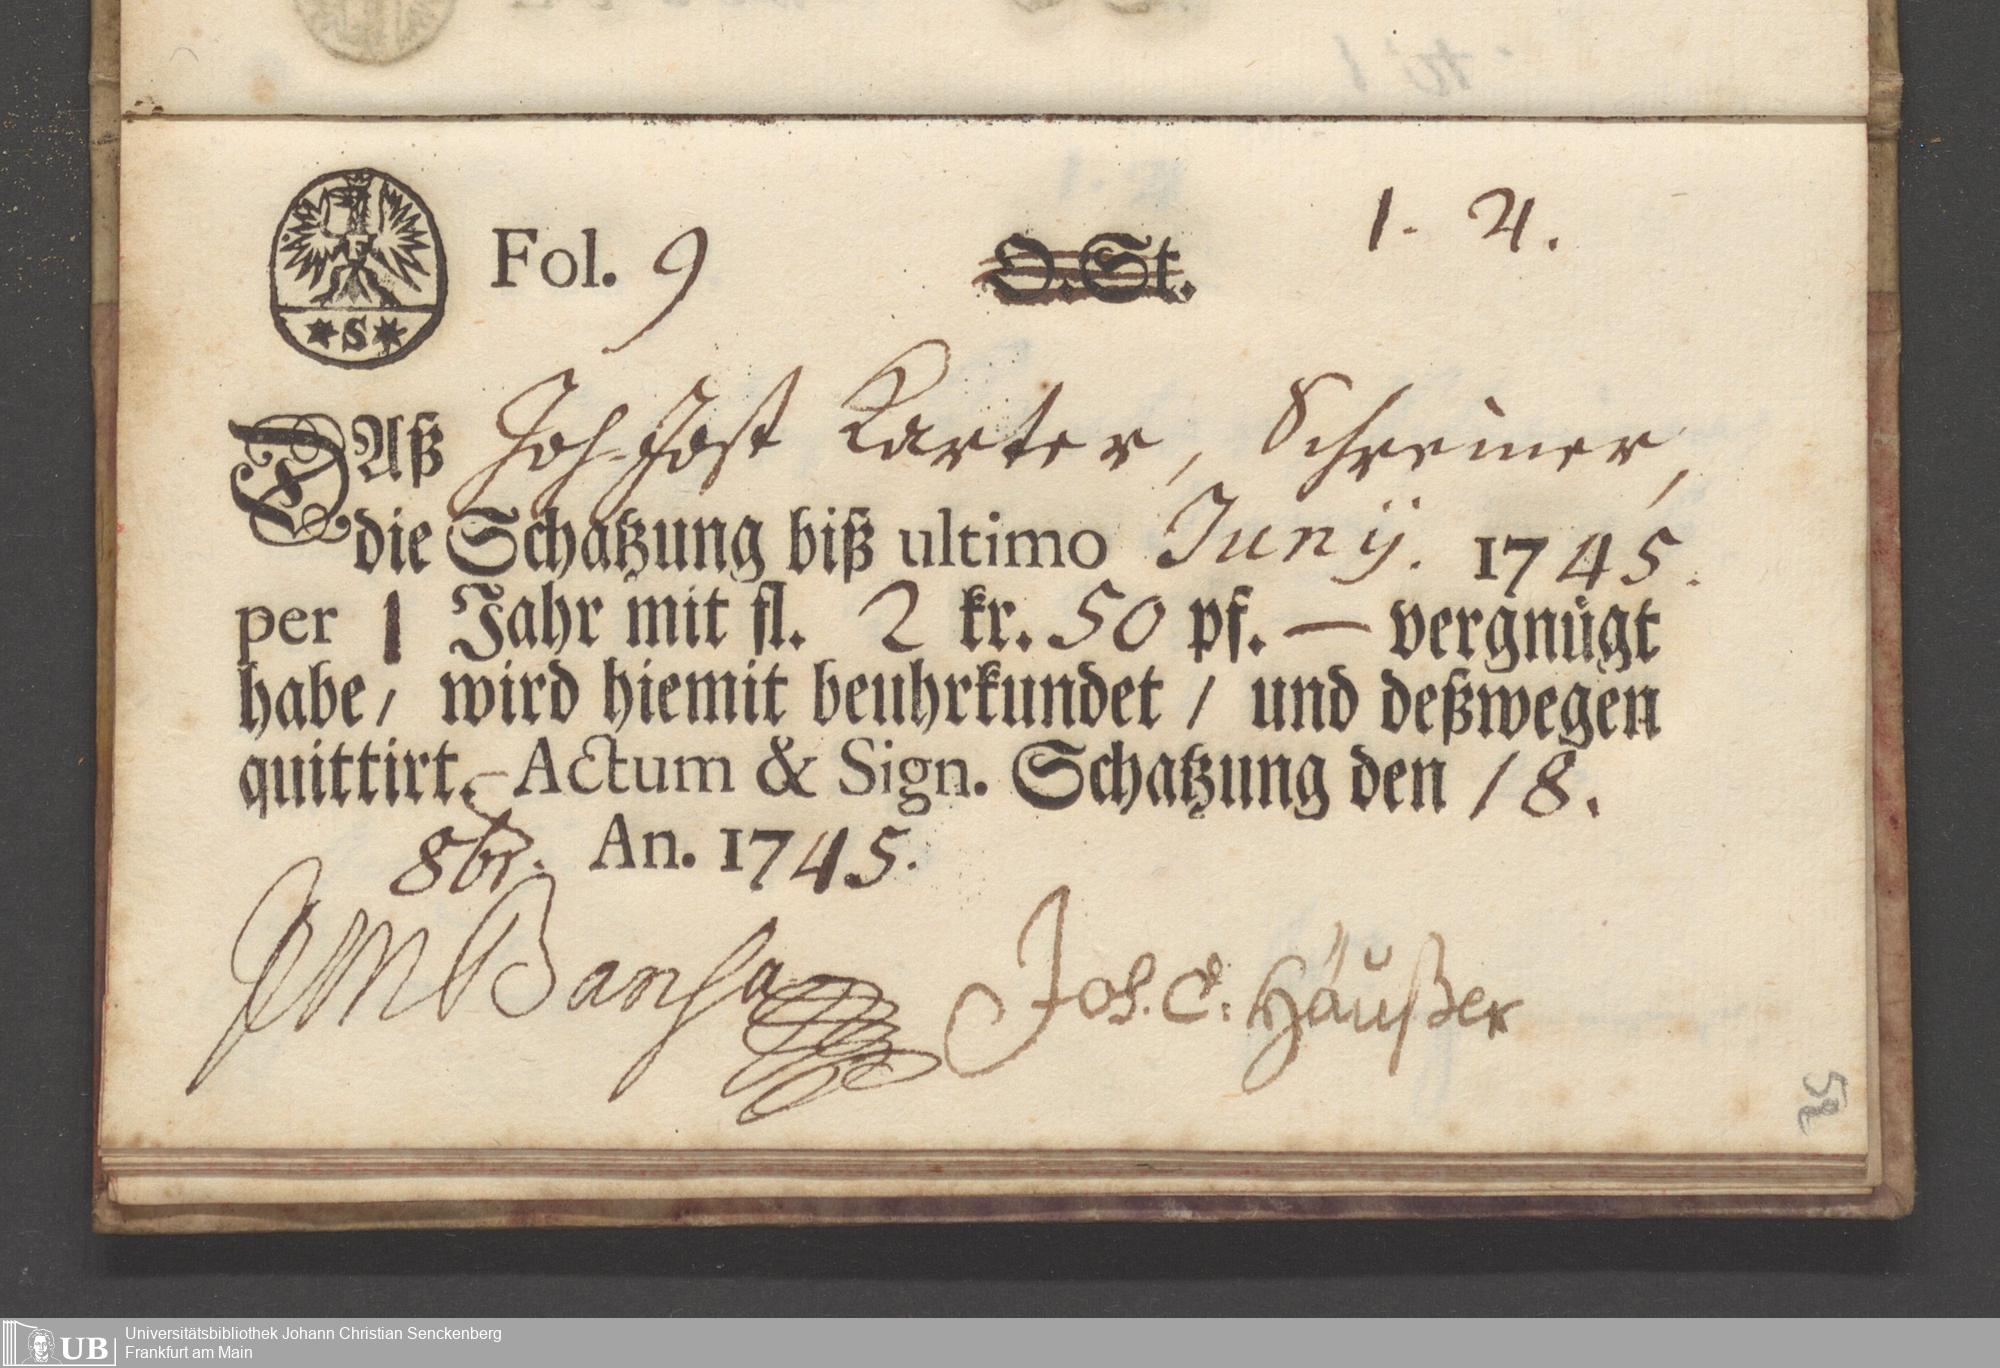 1. 4.
Fol. 9 O.St.
S
DAß Joh. Jost Karter, Schreiner,
die Schatzung biß ultimo Junÿ. 1745.
per 1 Jahr mit fl. 2 kr. 50 pf. — vergnügt
habe / wird hiemit beuhrkundet / und deßwegen
quittirt. Actum & Sign. Schatzung den 18.
8br. An. 1745.
JMBansa Joh. C. Häußer
52
UB Universitätsbibliothek Johann Christian Senckenberg
Frankfurt am Main